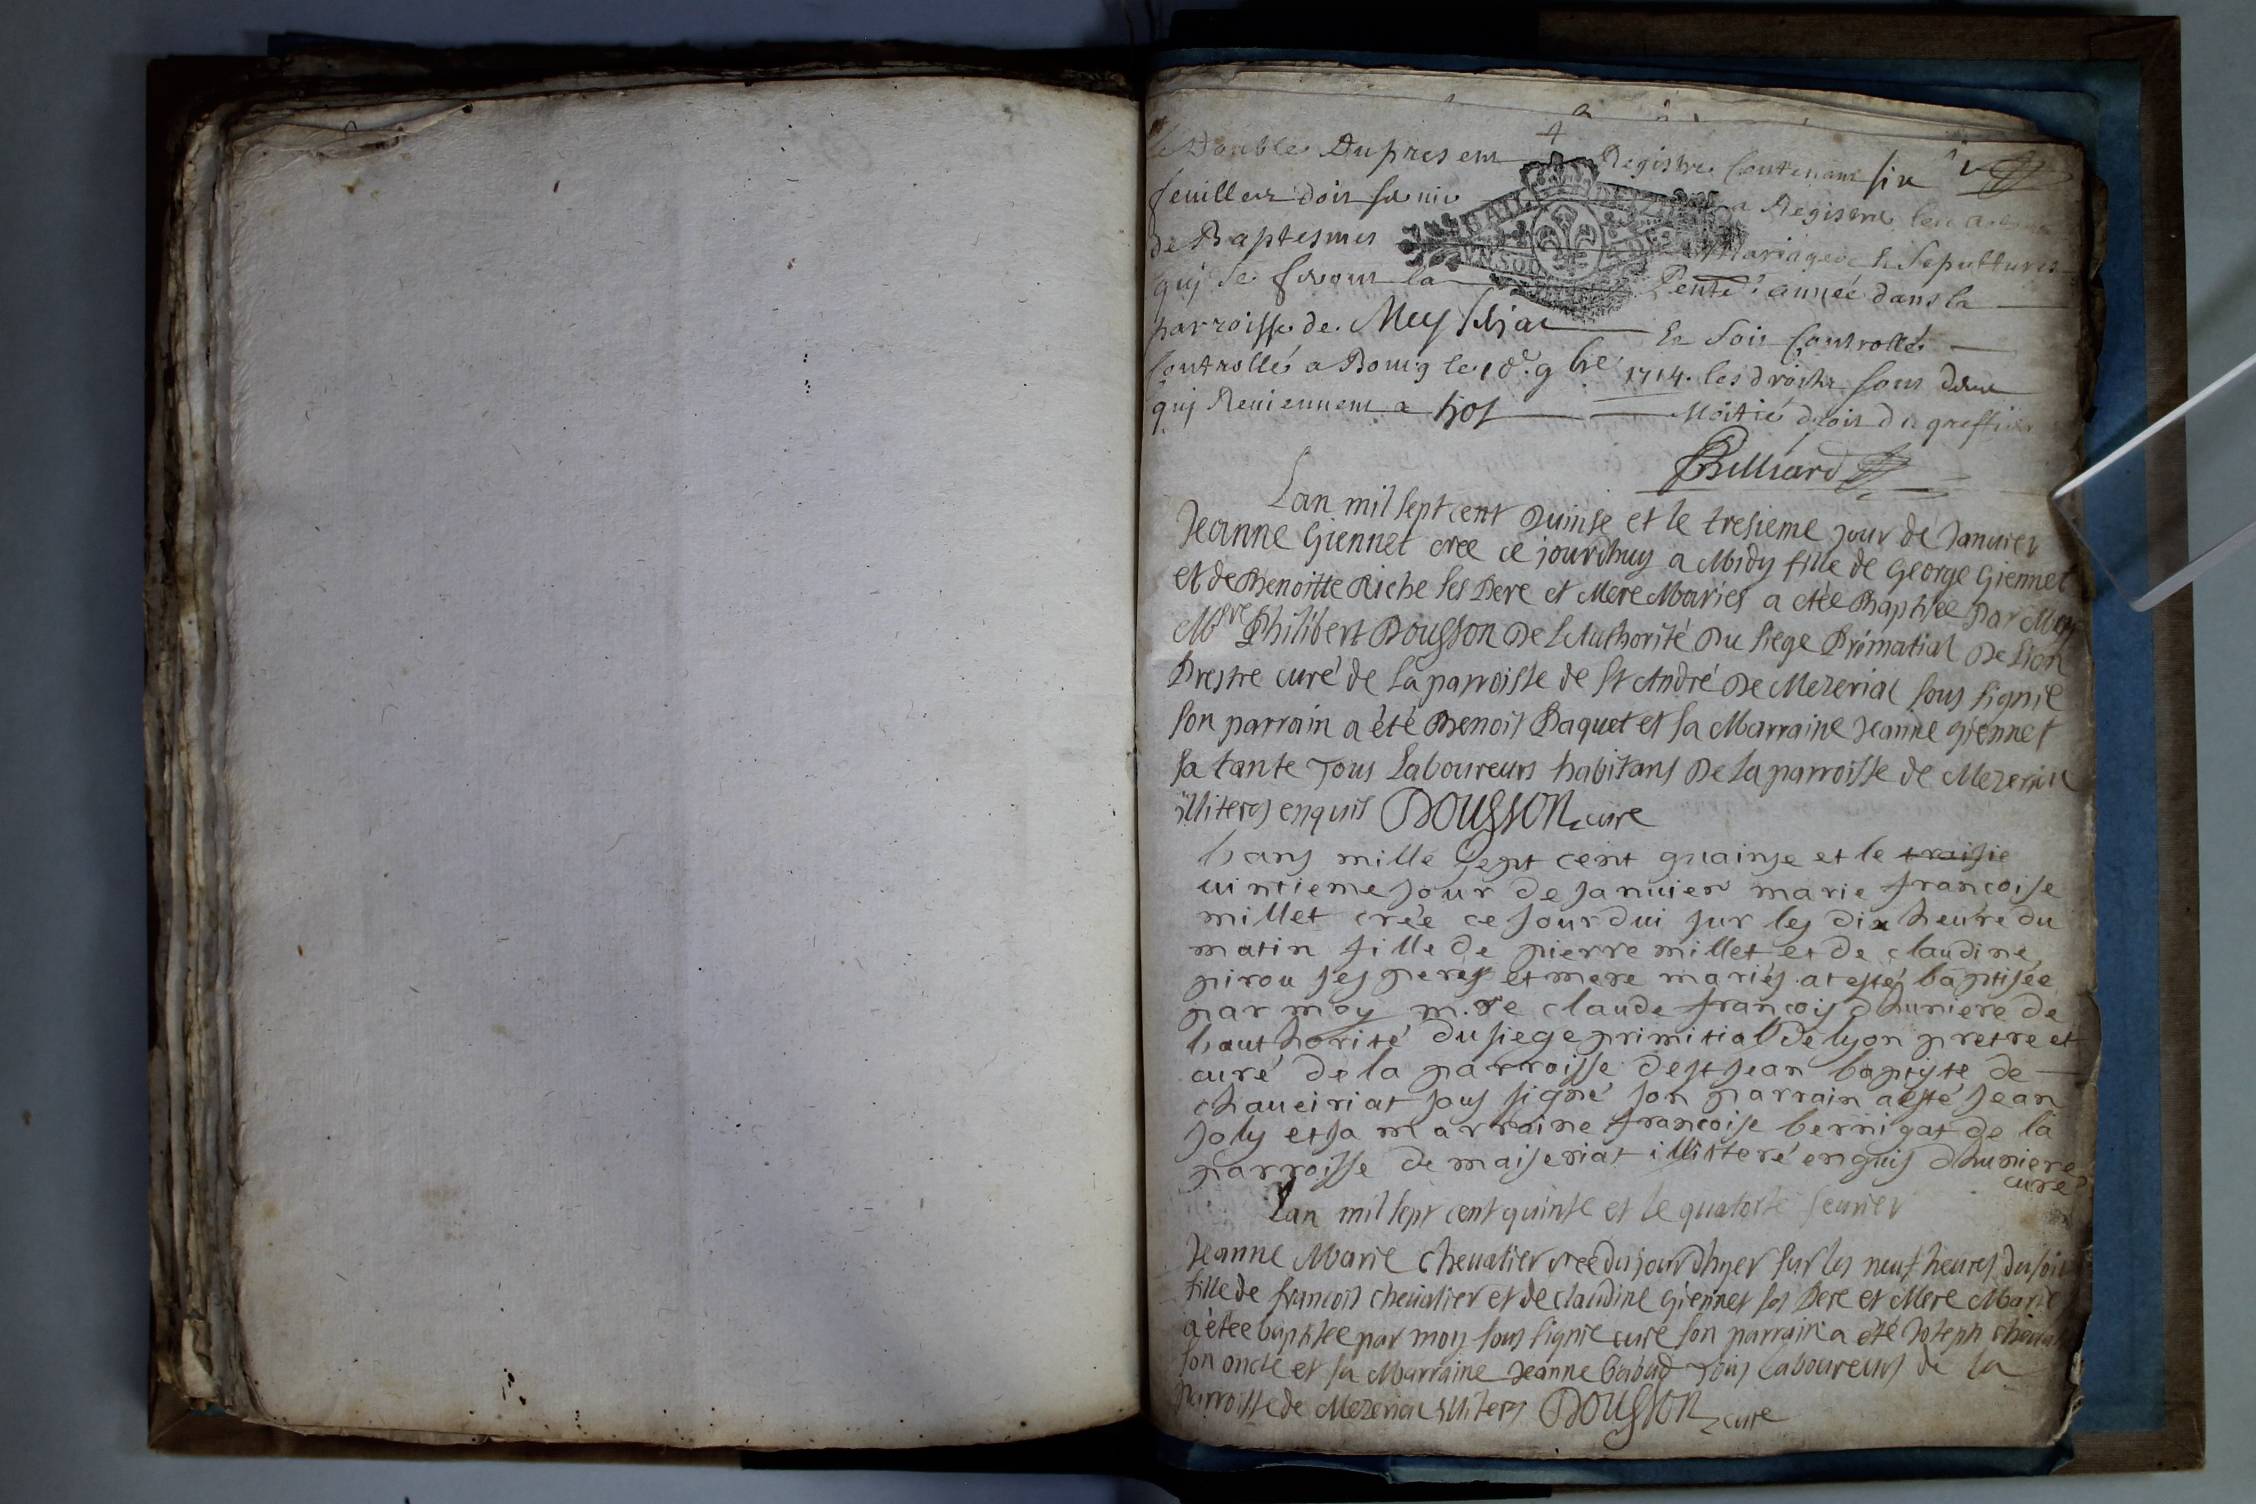 Le Double Du present Registre Contenant six
feuillets doit servir a Registrer les actes
de Baptesmes Mariages & Sepultures
quj se feront la pnte année dans la
parroisse de Meyseriat Et soit Controllé
Controllé a Bourg le 18e. 9bre 1714. les droits sont deux
quj Reviennent a Moitié droit de greffier
Billiard
Lan mil sept cent Quinse et le tresieme jour de Janvier
Jeanne Giennet cree ce jourdhuy a Midy fille de George Giennet
et de Benoitte Riche ses Pere et Mere Mariés a étée Baptisée Par Moy
Mre Philibert Dousson De l'Authorité Du siege Primatial De Lion
Prestre curé de La parroisse de St André De Mezeriat sous signie
son parrain a été Benoit Paquet et sa Marraine Jeanne Giennet
sa tante Tous Laboureurs habitans De La parroisse de Mezeriat
illiteres enquis DOUSSON curé
Lans mille sept cent quainse et le traisie
vintieme jour de Janvier marie francoise
millet crée ce jourdui sur les dix heure du
matin fille de pierre millet et de claudine
pirou ses peres et mere mariés at esté baptisée
par moy m.re claude françois dhuniere de
Lauthorité du siege primitial de lyon pretre et
curé de la parroisse de st jean baptyte de
chaveiriat sous signé son parrain a esté jean
joly et sa marraine francoise bernigat de la
parroisse de maiseriat illitteré enquis dhuniere
curé
Lan mil sept cent quinse et le quatorse fevrier
Jeanne Marie Chevalier cree du jour dhyer sur les neuf heures du soir
fille de francois chevalier et de claudine Giennet ses Pere et Mere Marié
a étée baptisée par moy sous signie curé son parrain a été Joseph cheval
son oncle et sa Marraine Jeanne babad Tous Laboureurs de la
parroisse de Mezeriat illiteres DOUSSON curé